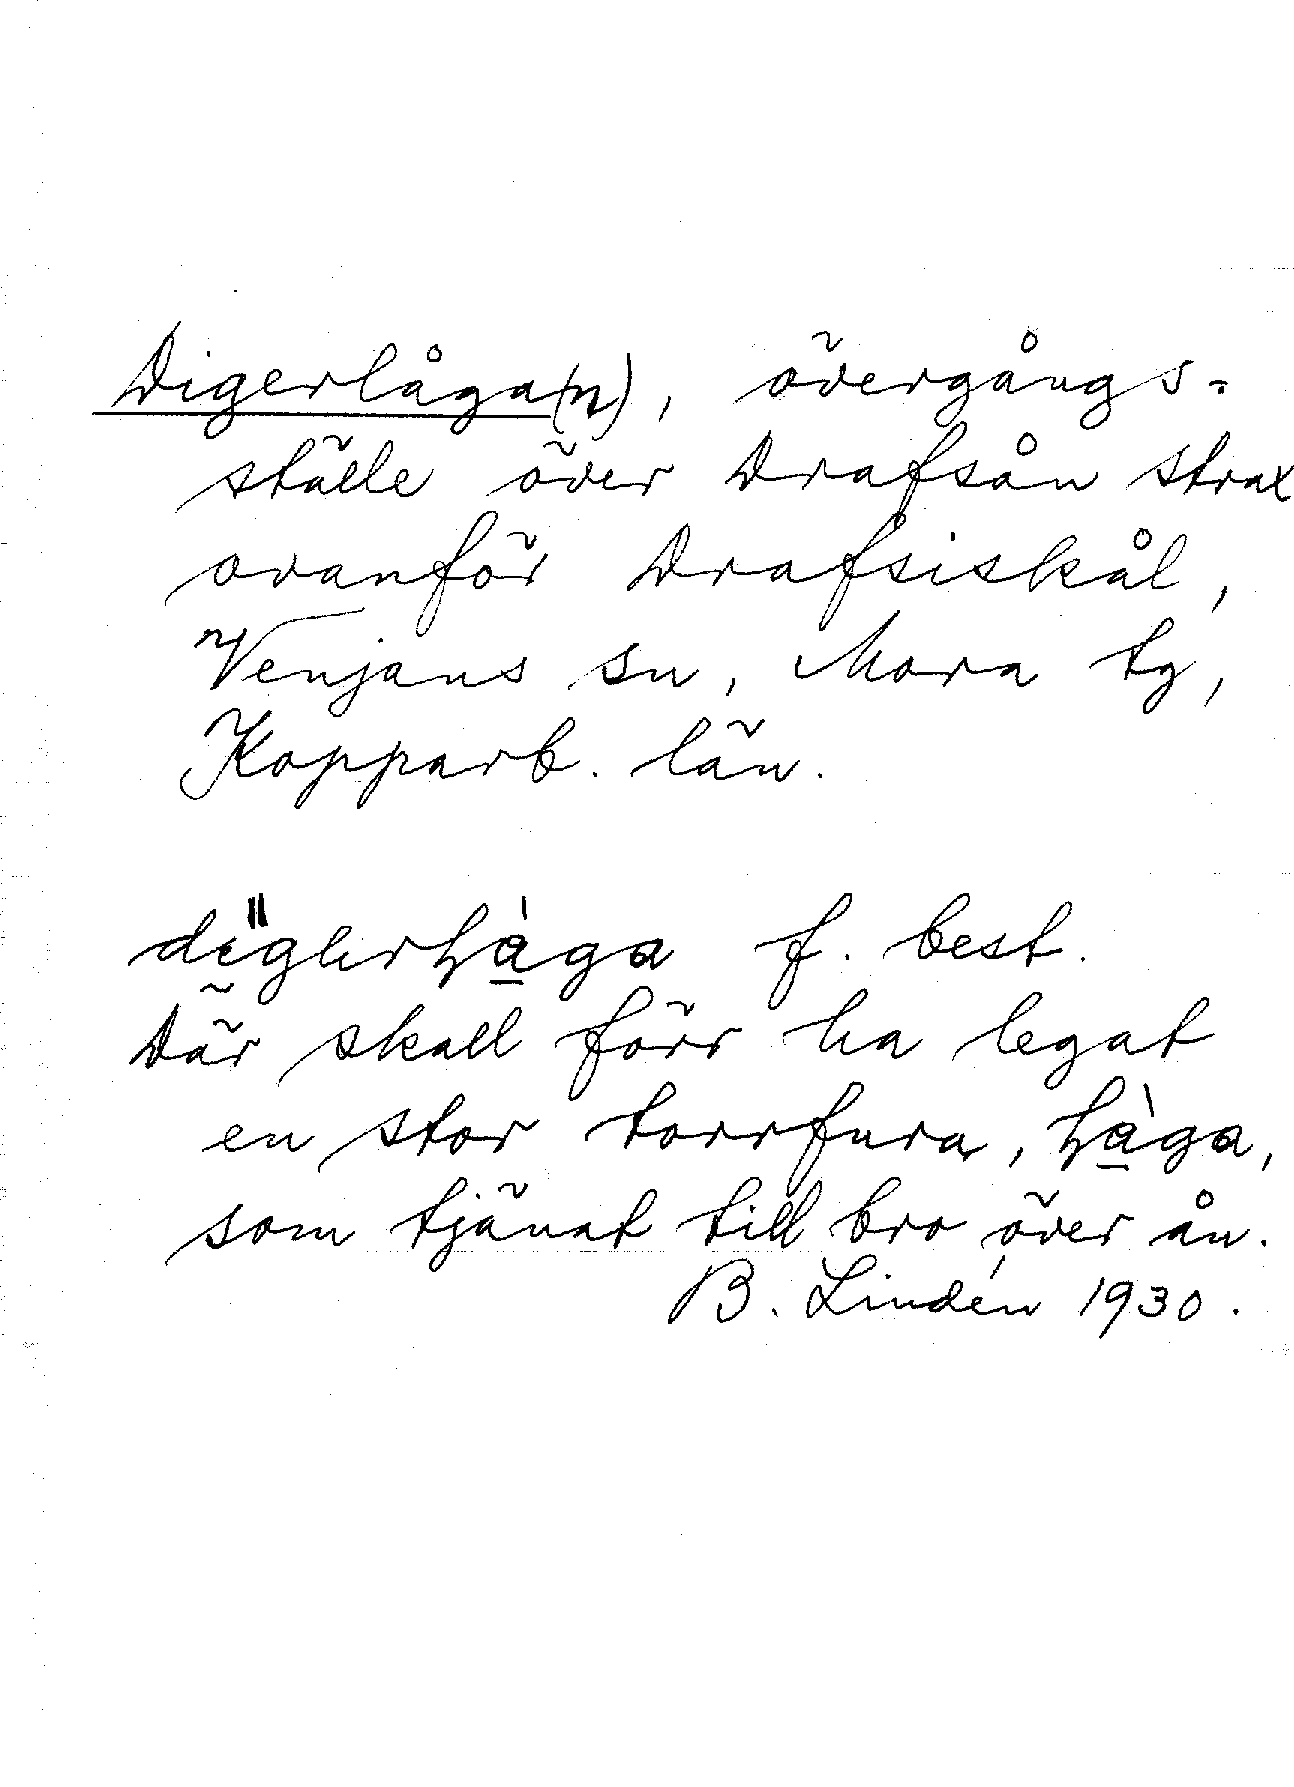 Digerlåga(n), övergångs-
ställe över Drafsån strax
ovanför Drafsiskål,
Venjans sn, Mora tg,
Kopparb. län.
f. best.
Där skall förr ha legat
en stor torrfura,
som tjänat till bro över ån.
B. Lindén 1930.